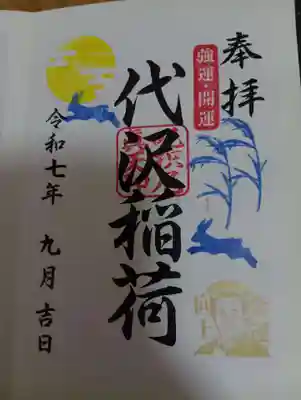 奉拝
強運・開運
代沢稲荷
令和七年 九月吉日
向上